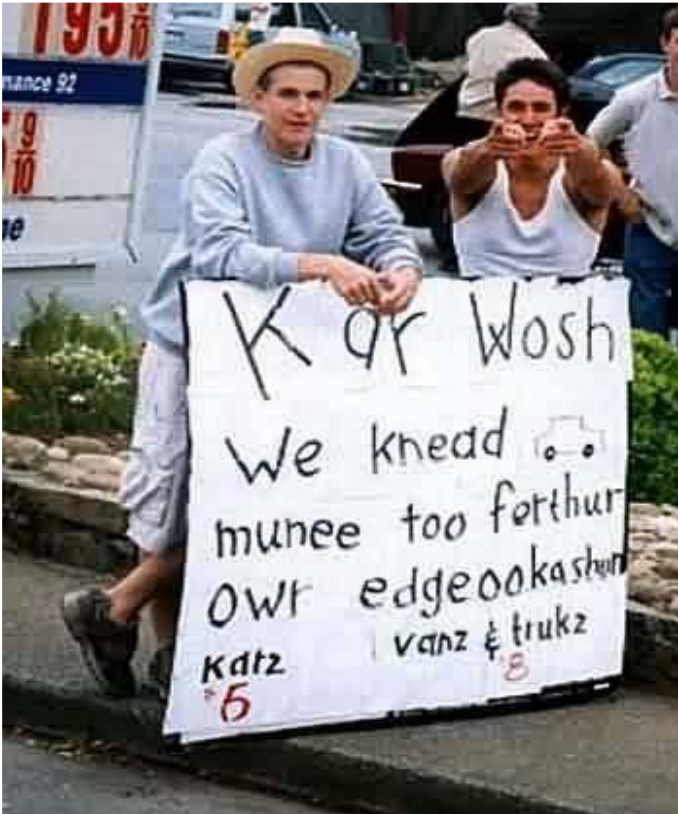 195 9/10
mance 92
9/10
ge
Kar Wosh
We knead
munee too ferthur
owr edgeookashun
Karz vanz & trukz
$5 $8